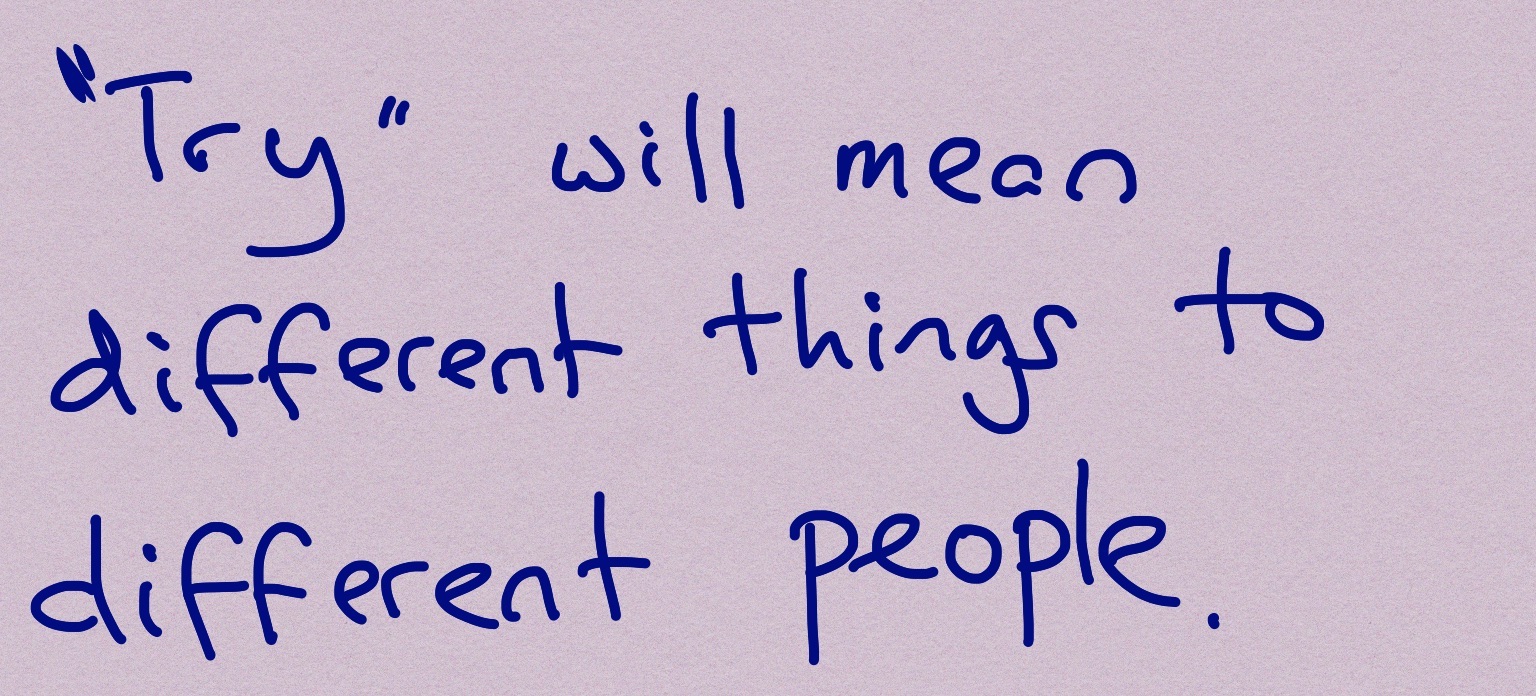 "Try" will mean
different things to
different people.